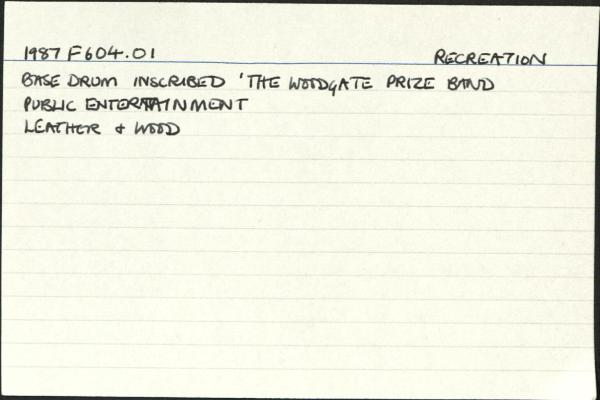 1987 F604.01 RECREATION
BASE DRUM INSCRIBED 'THE WOODGATE PRIZE BAND
PUBLIC ENTERTAINMENT
LEATHER & WOOD